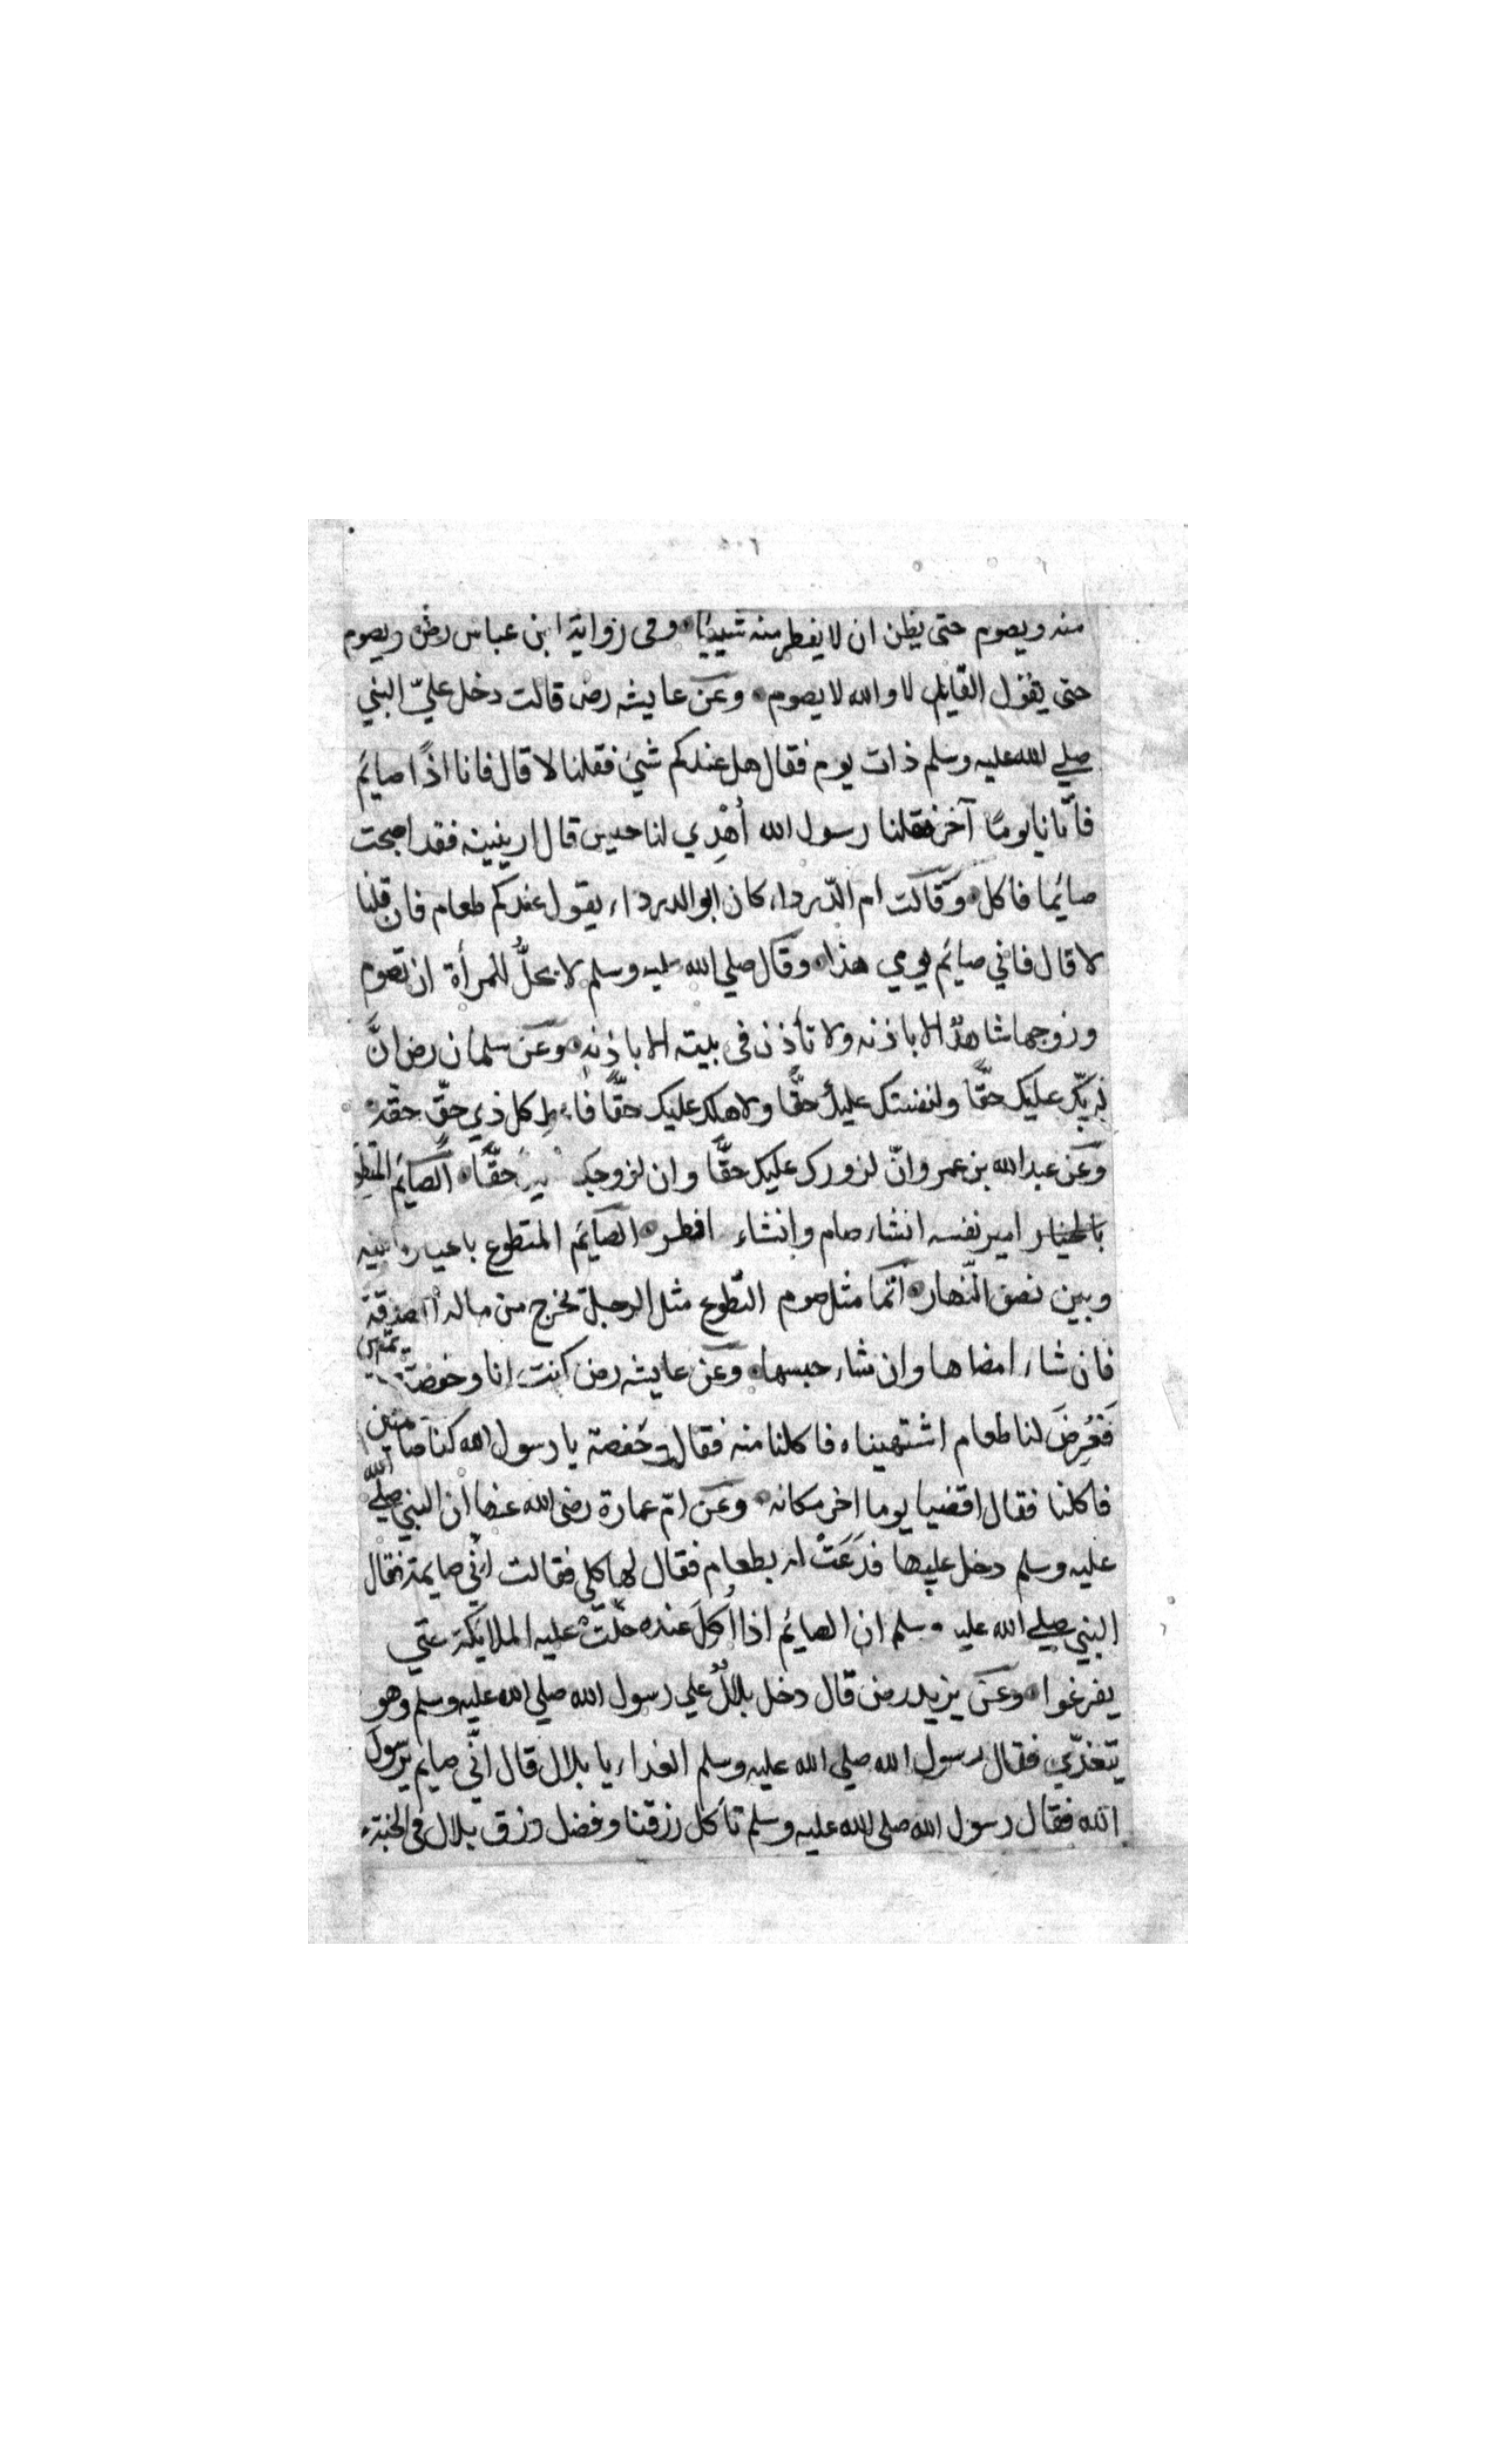 منه ويصوم حتى يظن ان لا يفطر منه شيئا وفى رواية ابن عباس رض ويصوم
حتى يقول القايل لا والله لا يصوم وعن عايشه رض قالت دخل عليّ النبي
صلي الله عليه وسلم ذات يوم فقال هل عندكم شيئ فقلنا لا قال فانا اذًا صايم
فأتانا يومًا آخر فقلنا رسول الله أُهْدِي لنا حيس قال ارينيه فقد اصبحت
صايما فاكل وقالت ام الدّرداء كان ابو الدرداء يقول عندكم طعام فان قلنا
لا قال فاني صايم يومي هذا وقال صلي الله عليه وسلم لا يحلُّ للمرأة ان تصوم
وزوجها شاهدٌ الا باذنه ولا تأذن فى بيته الا باذنه وعن سلمان رض انَّ
لربّك عليك حقًّا ولنفسك عليك حقًّا ولاهلك عليك حقًّا فاعط كل ذي حقّ حقه
وعن عبد الله بن عمر وانّ لزورك عليك حقًّا وان لزوجك حقًّا الصايم المتطوع
بالخيار امير نفسه انشاء صام وانشاء افطر الصايم المتطوع بالخيار بينه
وبين نصف النّهار انّما مثل صوم التّطوع مثل الرجل يخرج من ماله الصدقة
فان شاء امضاها وان شاء حبسها وعن عايشه رض كنت انا وحفصة صايمتين
فَعُرِضَ لنا طعام اشتهيناه فاكلنا منه فقالت حفصة يا رسول الله كنا صايمتين
فاكلنا فقال اقضيا يوما اخر مكانه وعن امّ عمارة رضى الله عنها ان النبي صلي الله
عليه وسلم دخل عليها فدَعَتْ له بطعام فقال لها كلي فقالت انّي صايمة فقال
النبي صلي الله عليه وسلم ان الصايم اذا أُكِلَ عنده صلّتْ عليه الملايكة حتي
يفرغوا وعن يزيد رض قال دخل بلالٌ علي رسول الله صلي الله عليه وسلم وهو
يتغدّي فقال رسول الله صلي الله عليه وسلم الغداء يا بلال قال انّي صايم يرسول
الله فقال رسول الله صلي الله عليه وسلم تأكل رزقنا وفضل رزق بلال فى الجنة